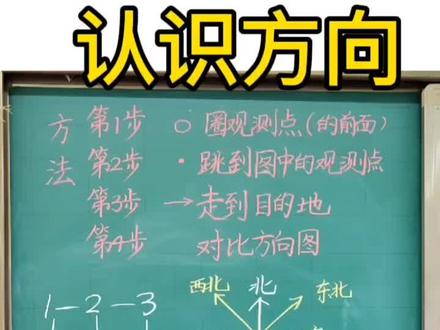 认识方向
方法
第1步 ○ 圈观测点(的前面)
第2步 · 跳到图中的观测点
第3步 → 走到目的地
第4步 对比方向图
西北 北 东北
1—2—3